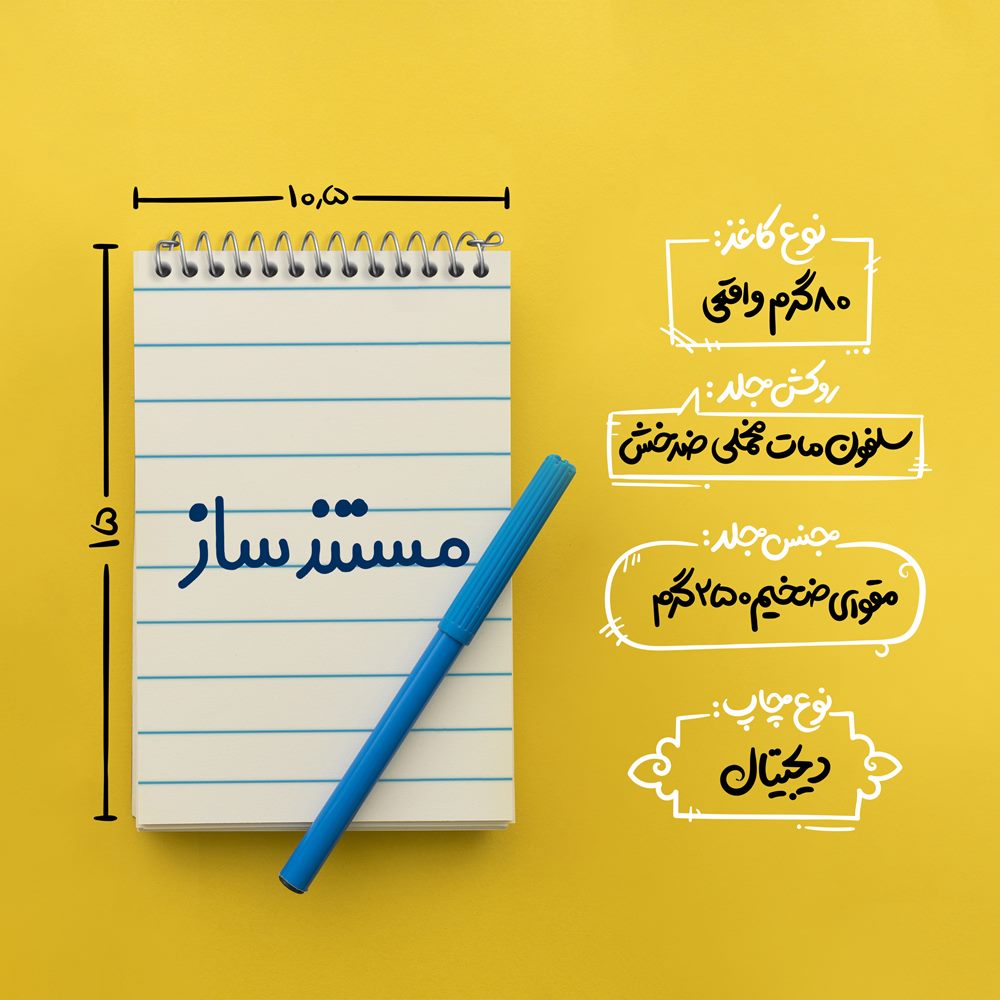 ۱۰٫۵
۱۵
مستند ساز
نوع کاغذ:
۸۰ گرم واقعی
روکش جلد:
سلفون مات مخملی ضدخش
جنس جلد:
مقوای ضخیم ۲۵۰ گرم
نوع چاپ:
دیجیتال